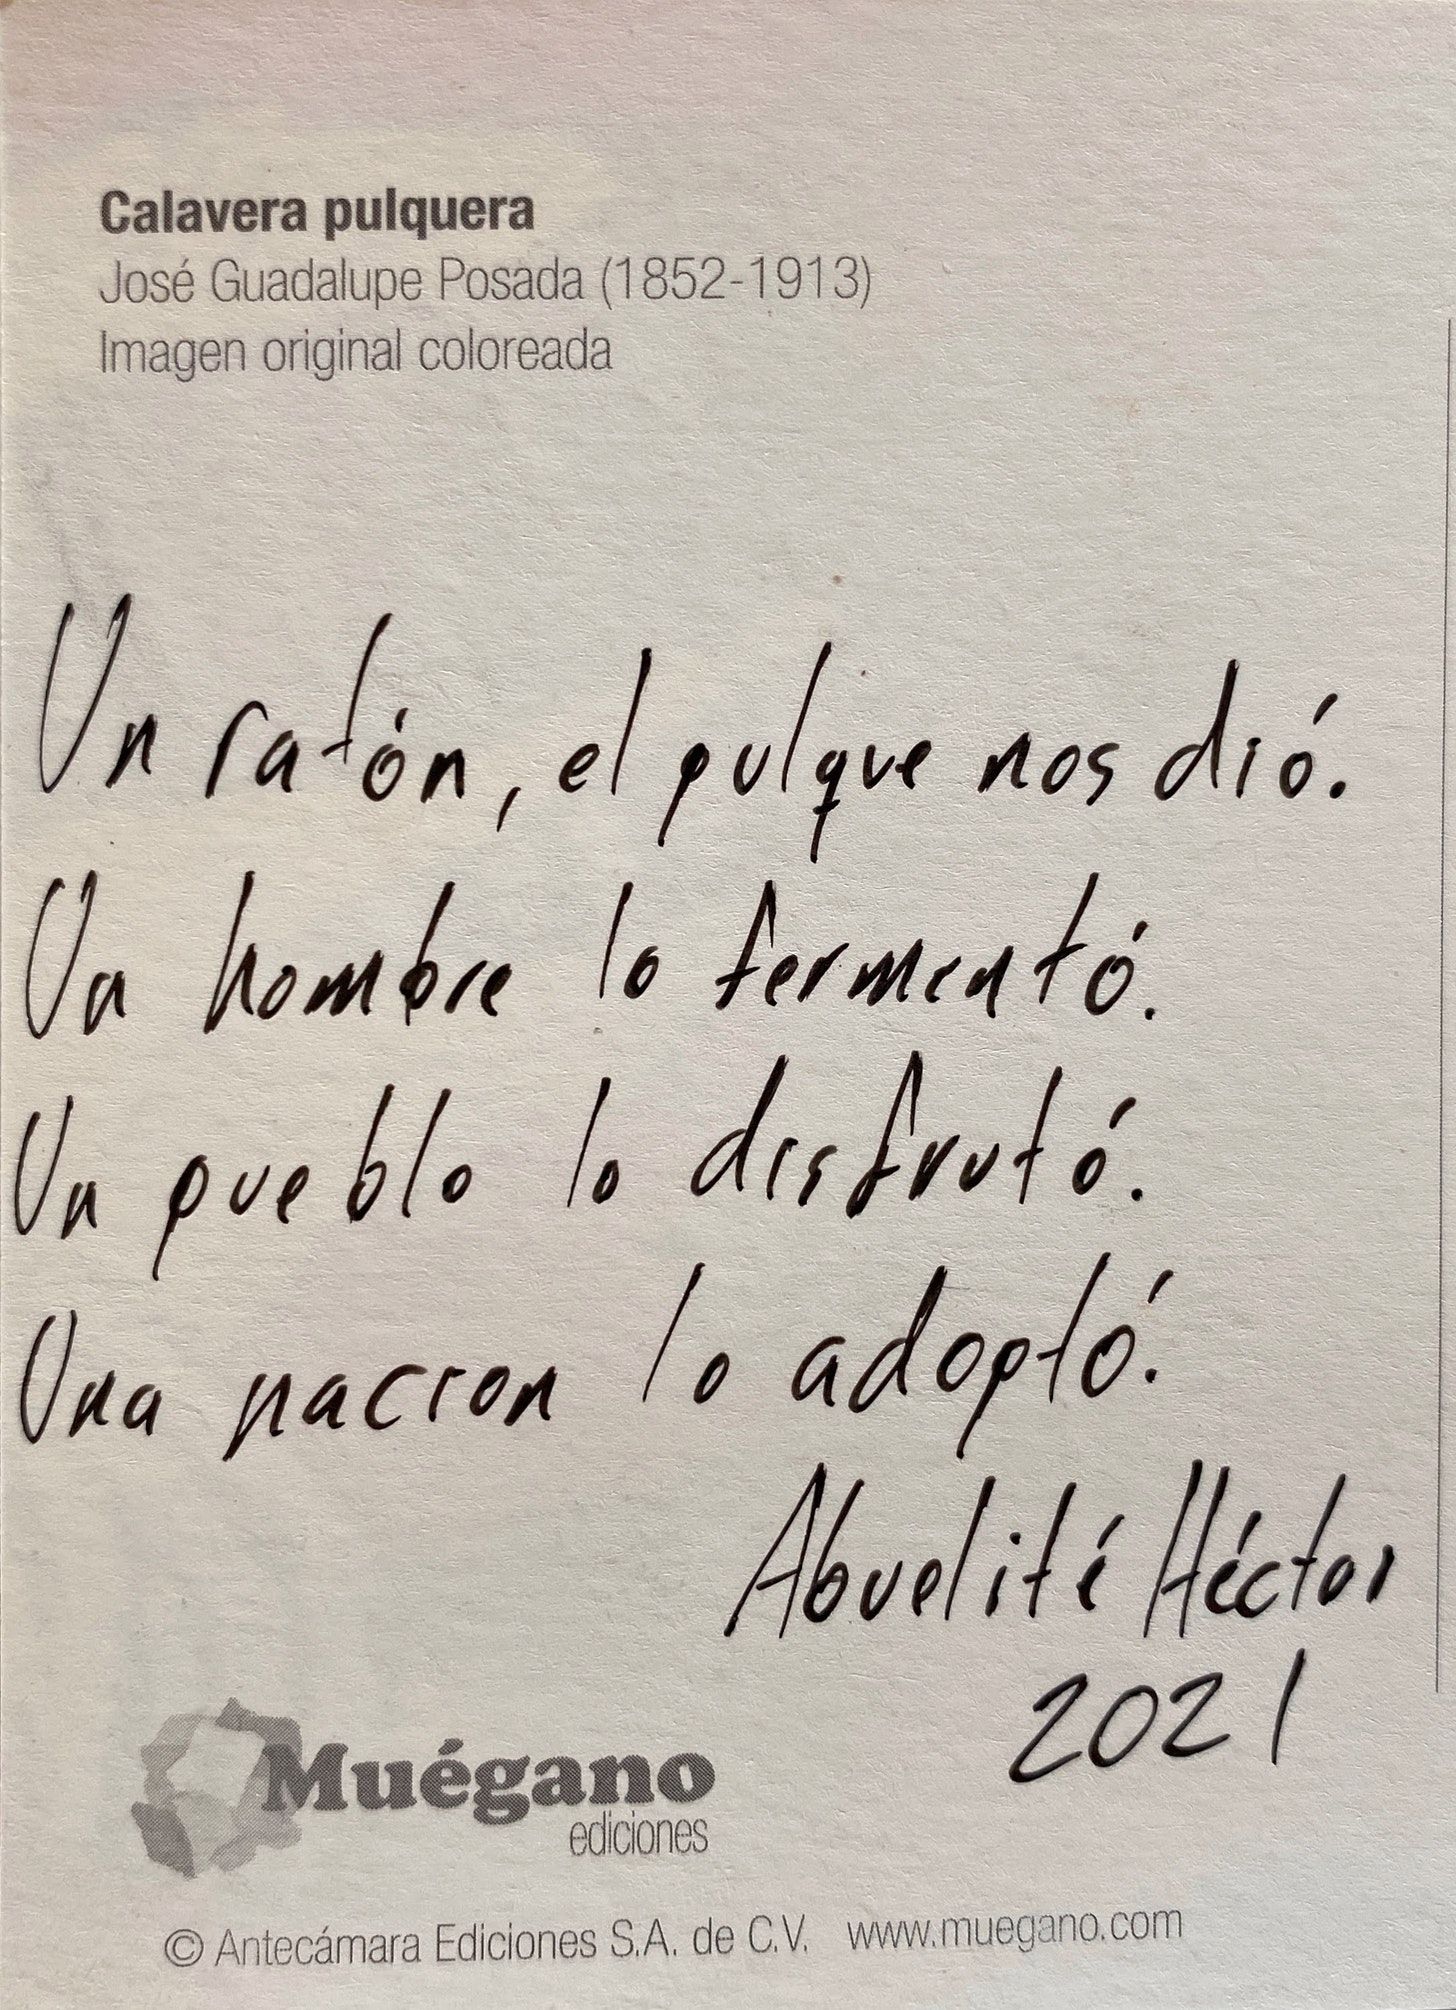 Calavera pulquera
José Guadalupe Posada (1852-1913)
Imagen original coloreada
Un ratón, el pulque nos dió.
Un hombre lo fermentó.
Un pueblo lo disfrutó.
Una nacion lo adoptó.
Abuelité Héctor
2021
Muégano
ediciones
© Antecámara Ediciones S.A. de C.V. www.muegano.com